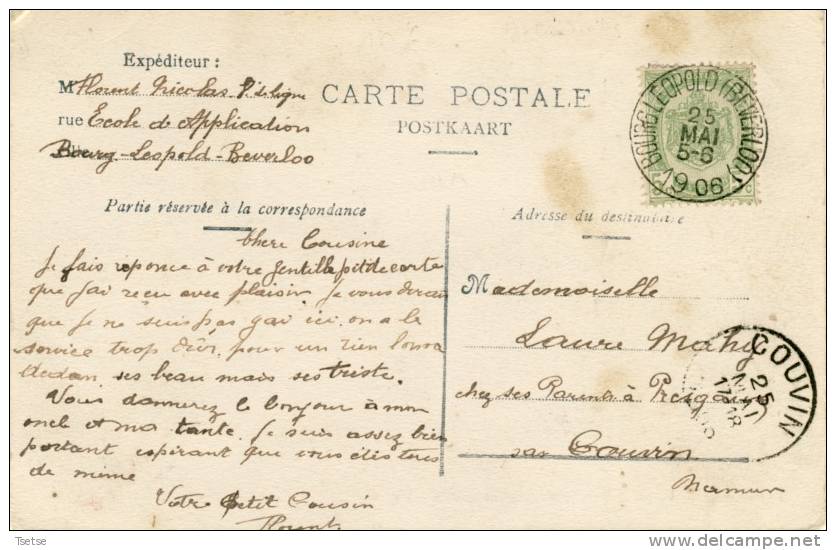 Expéditeur :
M Florent Nicolas
rue Ecole d'Application
Bourg-Leopold-Beverloo
CARTE POSTALE
POSTKAART
BOURG LEOPOLD (BEVERLOO)
25
MAI
5-6
1906
Partie réservée à la correspondance
Adresse du destinataire
Chere Cousine
Je fais reponce à votre gentille pitde carte
que j'ai reçu avec plaisir. Je vous dirai
que je ne suis pas gai ici. on a le
service trop dûr, pour un rien l'on va
dedan, ses beau mais ses triste.
Vous donnerez le bonjour à mon
oncle et ma tante. Je suis assez bien
portant espirant que vous etes tous
de même
Votre petit Cousin
Florent
Mademoiselle
Laure Mahy
chez ses Parents à
par Couvin
Namur
COUVIN
25
MAI
Tsetse
www.delcampe.net